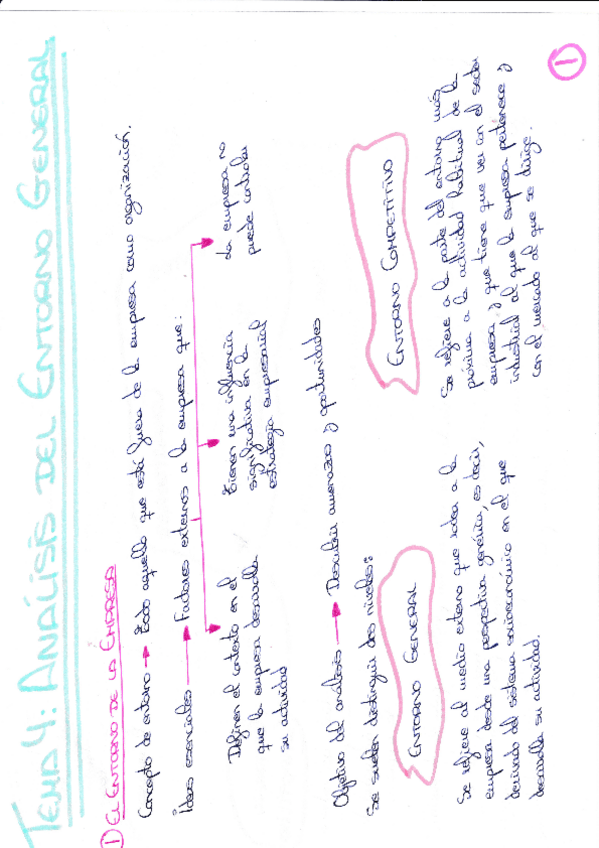 TEMA 4: ANÁLISIS DEL ENTORNO GENERAL
1) EL ENTORNO DE LA EMPRESA
Concepto de entorno → Todo aquello que está fuera de la empresa como organización.
Ideas esenciales → Factores externos a la empresa que:
Definen el contexto en el
que la empresa desarrolla
su actividad
Tienen una influencia
significativa en la
estrategia empresarial
La empresa no
puede controlar
Objetivo del análisis → Descubrir amenazas y oportunidades
Se suelen distinguir dos niveles:
ENTORNO GENERAL
Se refiere al medio externo que rodea a la
empresa desde una perspectiva genérica, es decir,
derivado del sistema socioeconómico en el que
desarrolla su actividad.
ENTORNO COMPETITIVO
Se refiere a la parte del entorno más
próxima a la actividad habitual de la
empresa y que tiene que ver con el sector
industrial al que la empresa pertenece y
con el mercado al que se dirige.
1